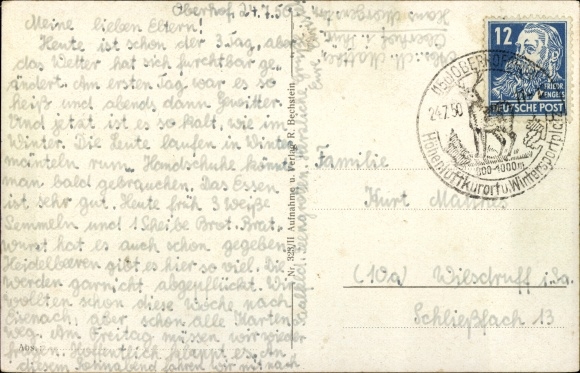 Oberhof 24.7.50
Meine lieben Eltern!
Heute ist schon der 3. Tag, aber
das Wetter hat sich furchtbar ge-
ändert. Am ersten Tag war es so
heiß und abends dann Gewitter.
Und jetzt ist es so kalt, wie im
Winter. Die Leute laufen in Winter
mänteln rum. Handschuhe könnt
man bald gebrauchen. Das Essen
ist sehr gut. Heute früh 3 weiße
Semmeln und 1 Scheibe Brot. Brat
wurst hat es auch schon gegeben
Heidelbeeren gibt es hier so viel. Die
werden garnicht abgepflückt. Wir
wollten schon diese Woche nach
Eisenach, aber schon alle Karten
weg. Am Freitag müssen wir wieder
fragen. Hoffentlich klappt es. An
diesem Sonnabend fahren wir mit nach
Saalfeld, Herzliche Grüße
Eure
Nr. 328/II Aufnahme u. Verlag R. Bechstein
Oberhof i. Thür.
12
FRIEDR.
ENGELS
DEUTSCHE POST
OBERHOF
24.7.50
800-1000m
Höhenluftkurort u. Wintersportplatz
Familie
Kurt
(10a) Wilsdruff i. Sa.
Schließfach 13